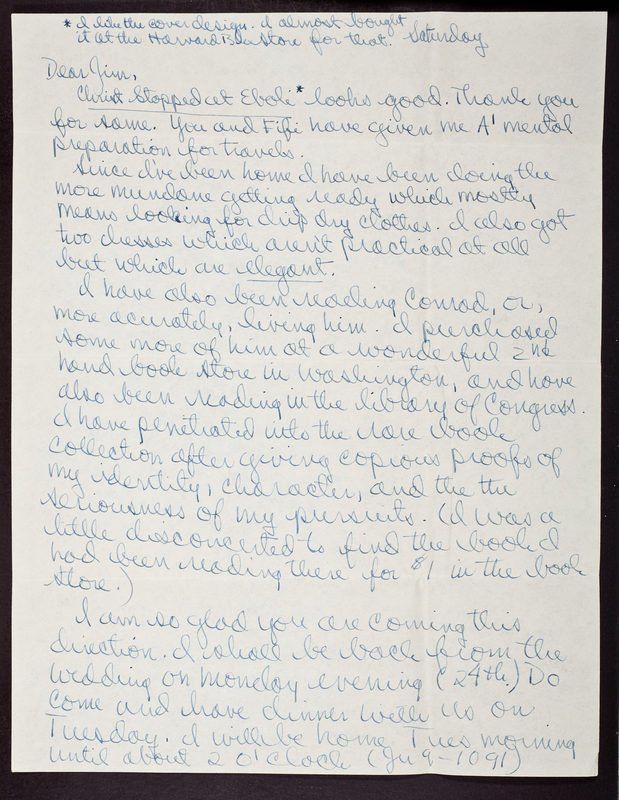 * I like the cover design. I almost bought
it at the Harvard Book Store for that. Saturday
Dear Jim,
Christ Stopped at Eboli* looks good. Thank you
for same. You and Fifi have given me A' mental
preparation for travels.
Since I've been home I have been doing the
more mundane getting ready which mostly
means looking for drip dry clothes. I also got
two dresses which aren't practical at all
but which are elegant.
I have also been reading Conrad, or,
more acurately, living him. I purchased
some more of him at a wonderful 2nd
hand book store in Washington, and have
also been reading in the library of Congress.
I have penetrated into the rare book
collection after giving copious proofs of
my identity, character, and the
seriousness of my pursuits. (I was a
little disconcerted to find the book I
had been reading there for $1 in the book
store.)
I am so glad you are coming this
direction. I shall be back from the
wedding on Monday evening (24th.) Do
come and have dinner with us on
Tuesday. I will be home Tues morning
until about 2 O'clock (Ju 9-1091)